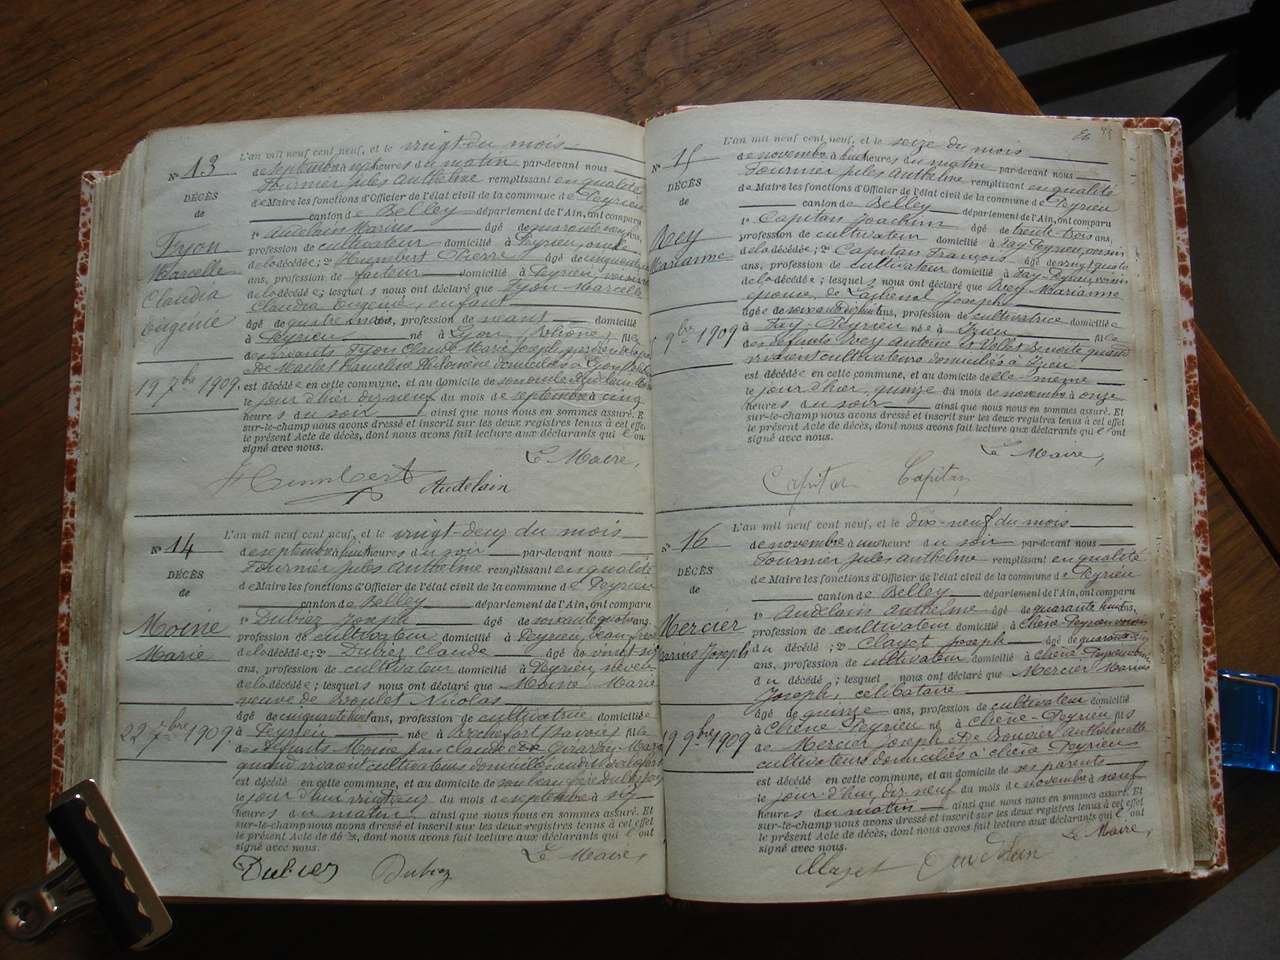 N° 13
DÉCÈS
de
Fyon
Marcelle
Claudia
Eugénie
19 7bre 1909.
L'an mil neuf cent neuf, et le vingt du mois
de septembre à heures du matin par-devant nous
Fournier Jules Anthelme remplissant en qualité
de Maire les fonctions d'Officier de l'état civil de la commune de Peyrieu
canton de Belley département de l'Ain, ont comparu
1° Audelain Marius âgé de quarante
profession de cultivateur domicilié à Peyrieu, oncle
de la décédée; 2° Humbert Pierre âgé de cinquante
ans, profession de facteur domicilié à Peyrieu voisin
de la décédée; lesquels nous ont déclaré que Fyon Marcelle
Claudia Eugénie, enfant
âgé de quatre mois, profession de néant domicilié
à Peyrieu né à Lyon, Rhône, fille
de vivants Fyon Claude Marie Joseph
De Marlet Francline Philomène domiciliés à Lyon
est décédée en cette commune, et au domicile de son oncle Audelain
le jour d'hier dix-neuf du mois de septembre à cinq
heures du soir ainsi que nous nous en sommes assuré. Et
sur-le-champ nous avons dressé et inscrit sur les deux registres tenus à cet effet
le présent Acte de décès, dont nous avons fait lecture aux déclarants qui l'ont
signé avec nous.
Le Maire,
Humbert Audelain
N° 14
DÉCÈS
de
Moine
Marie
22 7bre 1909
L'an mil neuf cent neuf, et le vingt-deux du mois
de septembre à huit heures du soir par-devant nous
Fournier Jules Anthelme remplissant en qualité
de Maire les fonctions d'Officier de l'état civil de la commune de Peyrieu
canton de Belley département de l'Ain, ont comparu
1° Dubiez Joseph âgé de soixante quatre ans,
profession de cultivateur domicilié à Peyrieu, beau frère
de la décédée; 2° Dubiez Claude âgé de vingt six
ans, profession de cultivateur domicilié à Peyrieu, neveu
de la décédée; lesquels nous ont déclaré que Moine Marie
veuve de Nicolas
âgé de cinquante huit ans, profession de cultivatrice domiciliée
à Peyrieu née à Rochefort (Savoie) fille
de défunts Moine Claude et Girardy Marie
quand vivaient cultivateurs domiciliés au dit Rochefort
est décédé en cette commune, et au domicile de son beau frère Dubiez
le jour d'hui vingt deux du mois de septembre à six
heures du matin ainsi que nous nous en sommes assuré. Et
sur-le-champ nous avons dressé et inscrit sur les deux registres tenus à cet effet
le présent Acte de décès, dont nous avons fait lecture aux déclarants qui l'ont
signé avec nous.
Le Maire,
Dubiez Dubiez
N° 15
DÉCÈS
de
Rey
Marianne
9bre 1909
L'an mil neuf cent neuf, et le seize du mois
de novembre à huit heures du matin par-devant nous
Fournier Jules Anthelme remplissant en qualité
de Maire les fonctions d'Officier de l'état civil de la commune de Peyrieu
canton de Belley département de l'Ain, ont comparu
1° Capitan Joachim âgé de trente-trois ans,
profession de cultivateur domicilié à Fay Peyrieu, voisin
de la décédée; 2° Capitan François âgé de vingt quatre
ans, profession de cultivateur domicilié à Fay-Peyrieu voisin
de la décédée; lesquels nous ont déclaré que Rey Marianne
épouse, de Joseph
âgé de soixante ans, profession de cultivatrice domicilié
à Fay-Peyrieu née à Izieu fille
de défunts Rey Antoine et Vollet Benoite quand
vivaient cultivateurs domiciliés à Izieu
est décédé en cette commune, et au domicile de elle-même
le jour d'hier, quinze du mois de novembre à onze
heures du soir ainsi que nous nous en sommes assuré. Et
sur-le-champ nous avons dressé et inscrit sur les deux registres tenus à cet effet
le présent Acte de décès, dont nous avons fait lecture aux déclarants qui l'ont
signé avec nous.
Le Maire,
Capitan Capitan
N° 16
DÉCÈS
de
Mercier
Marius Joseph
19 9bre 1909
L'an mil neuf cent neuf, et le dix-neuf du mois
de novembre à une heure du soir par-devant nous
Fournier Jules Anthelme remplissant en qualité
de Maire les fonctions d'Officier de l'état civil de la commune de Peyrieu
canton de Belley département de l'Ain, ont comparu
1° Audelain Anthelme âgé de quarante huit ans,
profession de cultivateur domicilié à Chêne Peyrieu voisin
du décédé; 2° Clayet Joseph âgé de quarante six
ans, profession de cultivateur domicilié à Chêne Peyrieu voisin
du décédé; lesquels nous ont déclaré que Mercier Marius
Joseph, célibataire
âgé de quinze ans, profession de cultivateur domicilié
à Chêne Peyrieu né à Chêne-Peyrieu fils
de Mercier Joseph et de Bouvier Anthelmette
cultivateurs domiciliés à Chêne Peyrieu
est décédé en cette commune, et au domicile de ses parents
le jour d'hui dix neuf du mois de novembre à neuf
heures du matin ainsi que nous nous en sommes assuré. Et
sur-le-champ nous avons dressé et inscrit sur les deux registres tenus à cet effet
le présent Acte de décès, dont nous avons fait lecture aux déclarants qui l'ont
signé avec nous.
Le Maire,